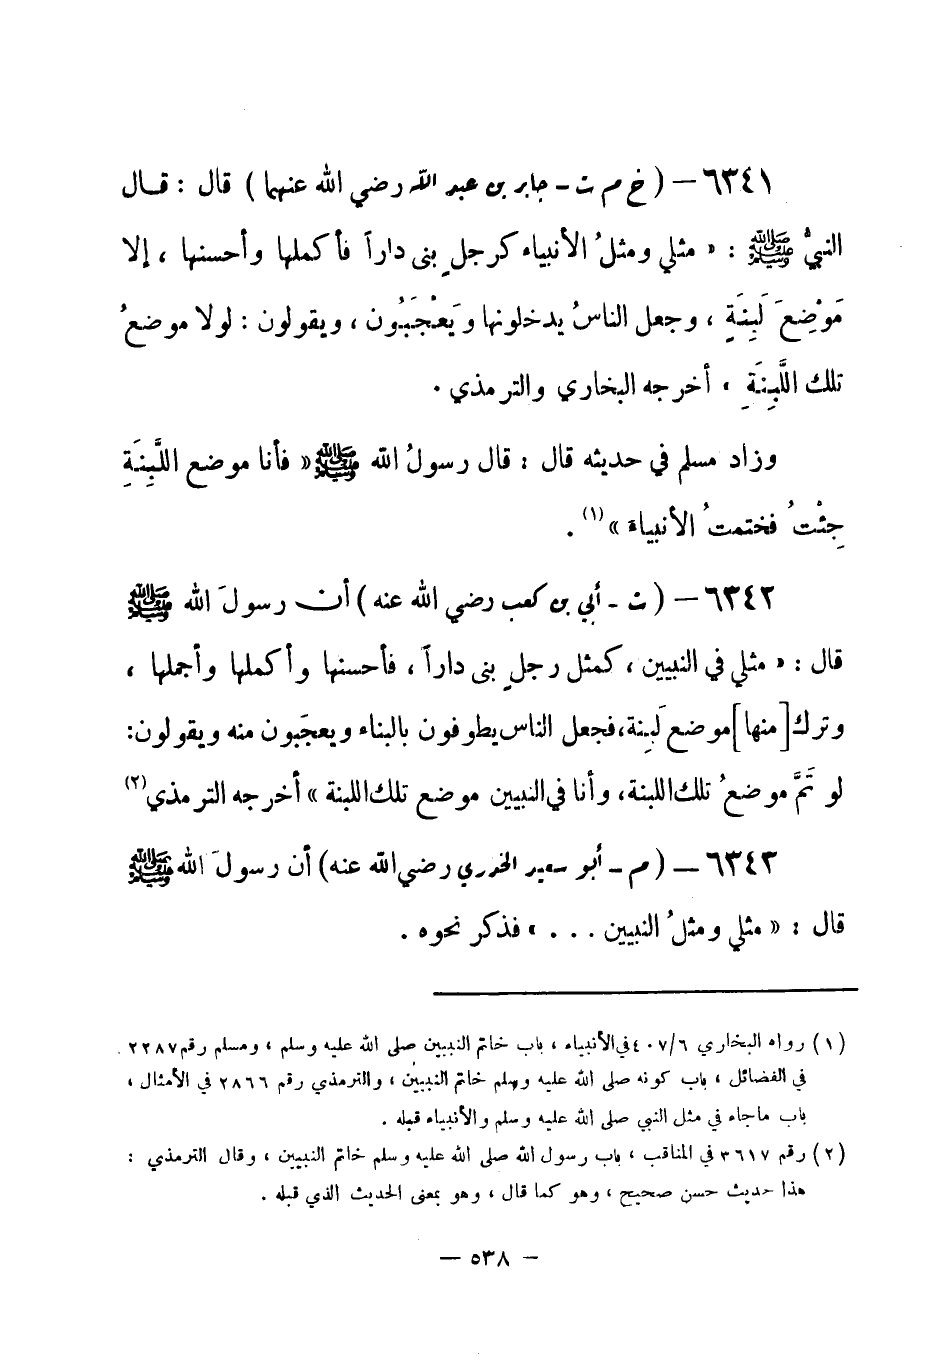 ٦٣٤١ — ( خ م ت - جابر بن عبد الله رضي الله عنهما ) قال : قـال
النبيُّ ﷺ : « مثلي ومثلُ الأنبياء كرجلٍ بنى داراً فأكملها وأحسنها ، إلا
مَوْضِعَ لَبِنَةٍ ، وجعل الناسُ يدخلونها ويَعْجَبُون ، ويقولون : لولا موضعُ
تلك اللَّبِنَةِ » أخرجه البخاري والترمذي .
وزاد مسلم في حديثه قال : قال رسولُ الله ﷺ « فأنا موضع اللَّبِنَةِ
جِئْتُ فختمتُ الأنبياءَ » (١) .
٦٣٤٢ — ( ت - أبي بن كعب رضي الله عنه ) أن رسولَ الله ﷺ
قال : « مثلي في النبيين ، كمثل رجلٍ بنى داراً ، فأحسنها وأكملها وأجملها ،
وترك [منها] موضع لَبِنة ، فجعل الناس يطوفون بالبناء ويعجَبون منه ويقولون :
لو تَمَّ موضعُ تلك اللبنة ، وأنا في النبيين موضع تلك اللبنة » أخرجه الترمذي (٢)
٦٣٤٣ — ( م - أبو سعيد الخدري رضي الله عنه ) أن رسولَ الله ﷺ
قال : « مثلي ومثلُ النبيين . . . » فذكر نحوه .
(١) رواه البخاري ٤٠٧/٦ في الأنبياء ، باب خاتم النبيين صلى الله عليه وسلم ، ومسلم رقم ٢٢٨٧
في الفضائل ، باب كونه صلى الله عليه وسلم خاتم النبيين ، والترمذي رقم ٢٨٦٦ في الأمثال ،
باب ماجاء في مثل النبي صلى الله عليه وسلم والأنبياء قبله .
(٢) رقم ٣٦١٧ في المناقب ، باب رسول الله صلى الله عليه وسلم خاتم النبيين ، وقال الترمذي :
هذا حديث حسن صحيح ، وهو كما قال ، وهو بمعنى الحديث الذي قبله .
— ٥٣٨ —